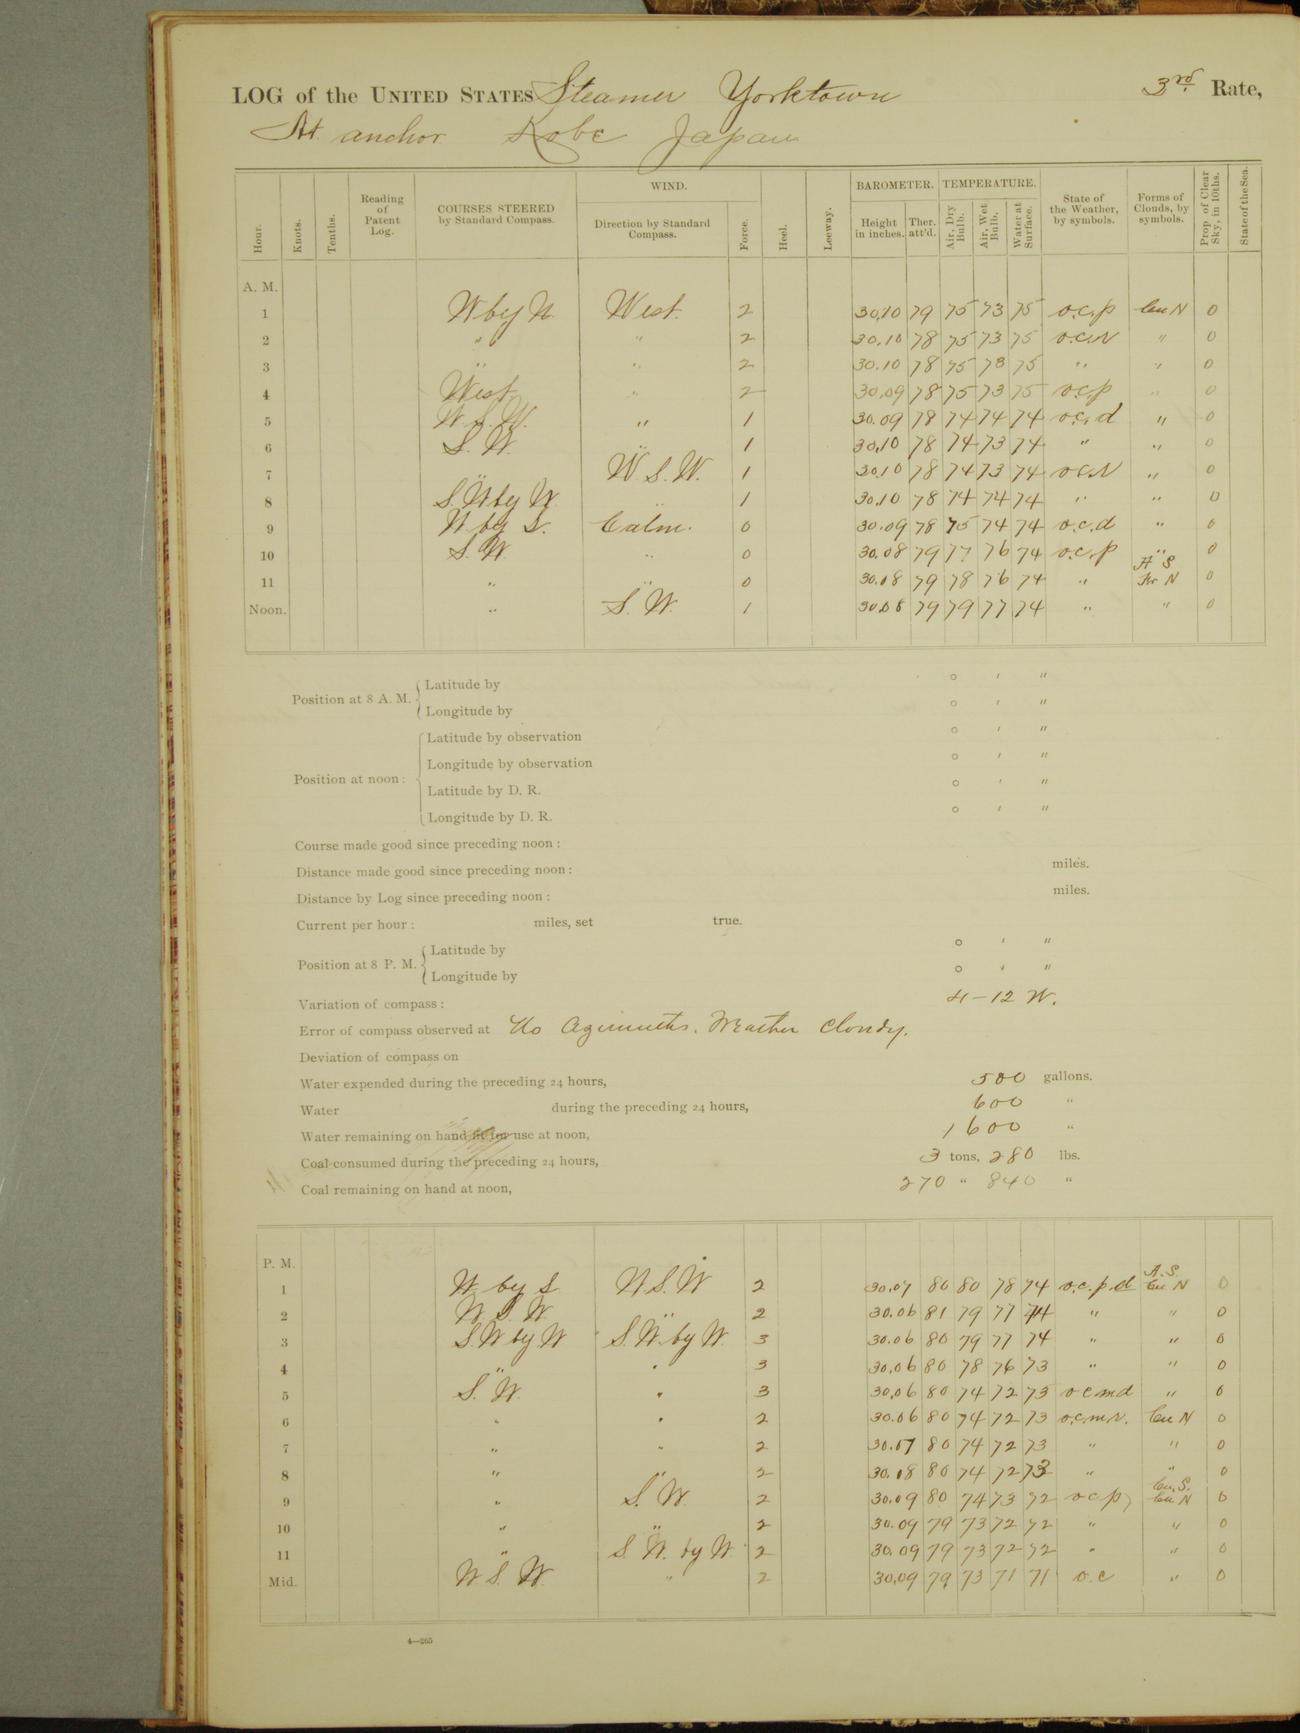 LOG of the UNITED STATES Steamer Yorktown 3rd Rate,
At anchor Kobe Japan
Hour. Knots. Tenths. Reading of Patent Log. COURSES STEERED by Standard Compass. WIND. Direction by Standard Compass. Force. Heel. Leeway. BAROMETER. Height in inches. Ther. att'd. TEMPERATURE. Air, Dry Bulb. Air, Wet Bulb. Water at Surface. State of the Weather, by symbols. Forms of Clouds, by symbols. Prop. of Clear Sky, in 10ths. State of the Sea.
A. M.
1 W by N West. 2 30.10 79 75 73 75 o.c.p Cu N 0
2 " " 2 30.10 78 75 73 75 o.c.r " 0
3 " " 2 30.10 78 75 73 75 " " 0
4 West " 2 30.09 78 75 73 75 o.c.p " 0
5 W.S.W. " 1 30.09 78 74 74 74 o.c.d " 0
6 S.W. " 1 30.10 78 74 73 74 " " 0
7 " W.S.W. 1 30.10 78 74 73 74 o.c.r " 0
8 S.W by W " 1 30.10 78 74 74 74 " " 0
9 W by S. Calm. 0 30.09 78 75 74 74 o.c.d " 0
10 S.W. " 0 30.08 79 77 76 74 o.c.p " 0
11 " " 0 30.08 79 78 76 74 " A S Fr N 0
Noon. " S.W. 1 30.08 79 79 77 74 " " 0
Position at 8 A. M. Latitude by ° ′ ″
Longitude by ° ′ ″
Position at noon: Latitude by observation ° ′ ″
Longitude by observation ° ′ ″
Latitude by D. R. ° ′ ″
Longitude by D. R. ° ′ ″
Course made good since preceding noon:
Distance made good since preceding noon: miles.
Distance by Log since preceding noon: miles.
Current per hour: miles, set true.
Position at 8 P. M. Latitude by ° ′ ″
Longitude by ° ′ ″
Variation of compass: 4-12 W.
Error of compass observed at No Azimuths. Weather cloudy.
Deviation of compass on
Water expended during the preceding 24 hours, 500 gallons.
Water during the preceding 24 hours, 600 "
Water remaining on hand fit for use at noon, 1600 "
Coal consumed during the preceding 24 hours, 3 tons, 280 lbs.
Coal remaining on hand at noon, 270 " 840 "
P. M.
1 W. by S W.S.W 2 30.07 80 80 78 74 o.c.p.d A.S. Cu N 0
2 W.S.W. " 2 30.06 81 79 77 74 " " 0
3 S.W by W S.W. by W. 3 30.06 80 79 77 74 " " 0
4 " " 3 30.06 80 78 76 73 " " 0
5 S.W. " 3 30.06 80 74 72 73 o c m d " 0
6 " " 2 30.06 80 74 72 73 o.c.m.r. Cu N 0
7 " " 2 30.07 80 74 72 73 " " 0
8 " " 2 30.08 80 74 72 73 " " 0
9 " S.W. 2 30.09 80 74 73 72 o c p, Cu.S. Cu N 0
10 " " 2 30.09 79 73 72 72 " " 0
11 " S.W. by W. 2 30.09 79 73 72 72 " " 0
Mid. W.S.W. " 2 30.09 79 73 71 71 o.c " 0
4—265